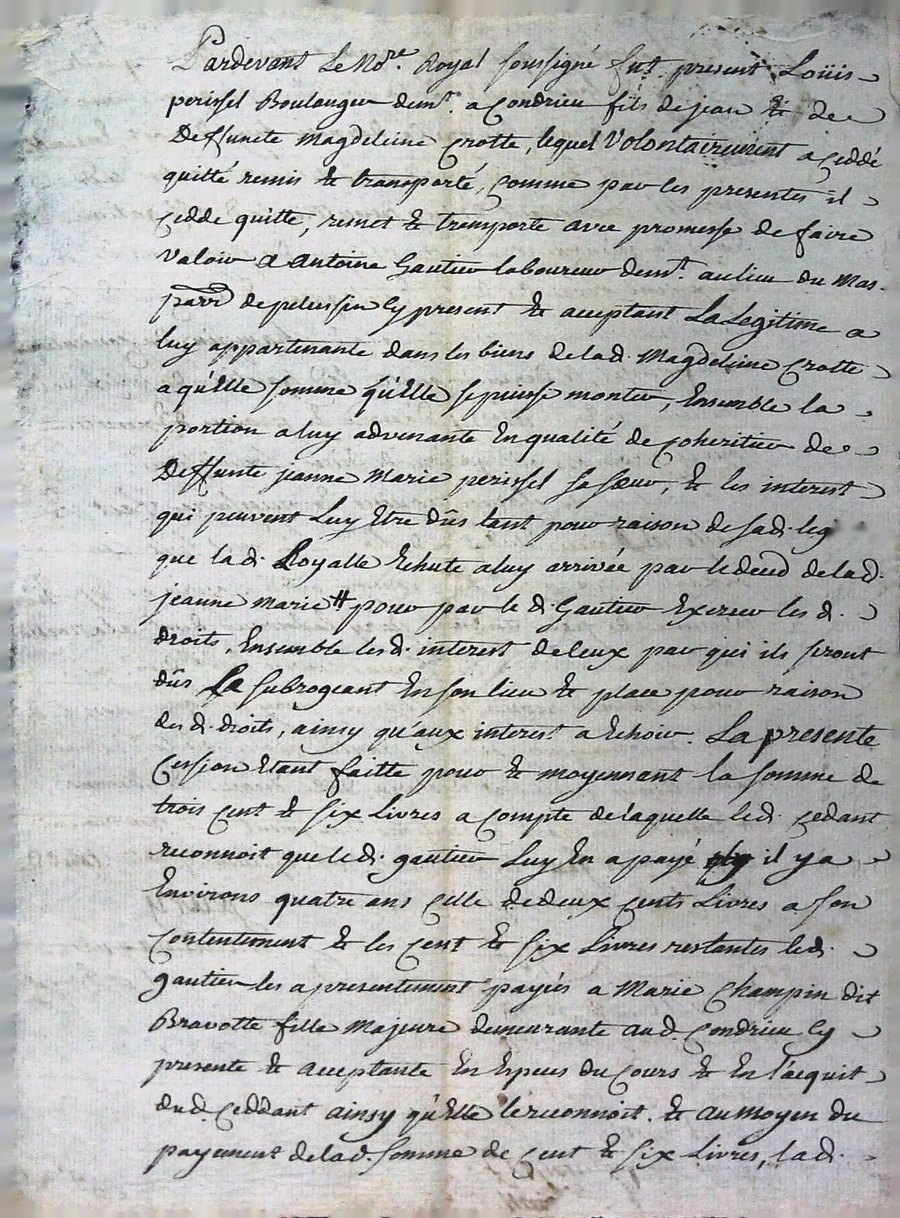 Pardevant Le No.re Royal soussigné fut present Loüis
perissel Boulanger dem.t a Condrieu fils de jean & de
Deffuncte Magdeleine Crotte, lequel Volontairement a ceddé
quitté remis & transporté, comme par les presentes il
cedde quitte, remet & tremporte avec promesse de faire
valoir a Antoine Gautier laboureur dem.t au lieu du Mas.
parr. de pelussin Cy present & aceptant La Legitime a
luy appartenante dans les biens de lad. Magdeleine Crotte
a qu'Elle somme qu'Elle se puisse monter, Ensemble la
portion a luy advenante En qualité de Coheritier de
Deffunte jeanne Marie perissel sa sœur, & les interest
qui peuvent Luy Etre dûs tant pour raison de sad. leg
que lad. Royalle Echute a luy arrivée par le deced de lad.
jeanne marie # pour par le d. Gautier Exercer les d.
droits, Ensemble les d. interest de ceux par qui ils seront
dûs La subrogeant En son lieu & place pour raison
des d. droits, ainsy qu'aux interest a Echoir. La presente
Cession Etant faitte pour & moyennant la somme de
trois cent & six Livres a compte de laquelle led. cedant
reconnoit que led. gautier Luy En a payé il y a
Environs quatre ans celle de deux cents Livres a son
Contentement & les cent & six Livres restantes led.
gautier les a presentement payés a Marie Champin dit
Bravotte fille Majeure demeurante aud. Condrieu Cy
presente & aceptante En Especes du Cours & En l'acquit
dud. Ceddant ainsy qu'Elle le reconnoit. & au moyen du
payement de lad. somme de cent & six Livres, lad.